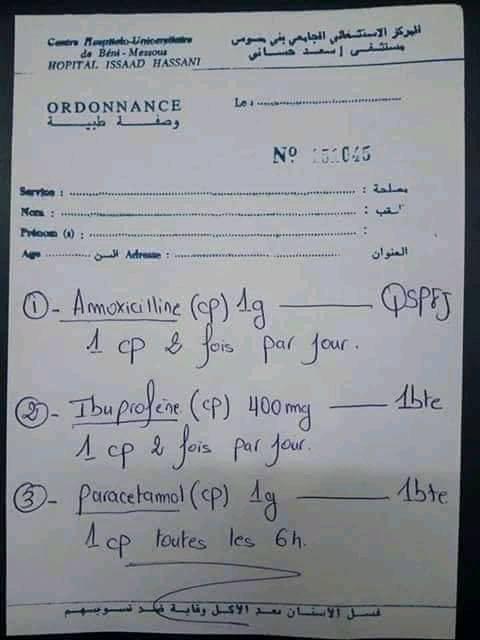 Centre Hospitalo-Universitaire
de Béni-Messous
HOPITAL ISSAAD HASSANI
المركز الاستشفائي الجامعي بني مسوس
مستشفى إسعد حساني
ORDONNANCE
وصفة طبية
Le :
Nº 151045
Service : مصلحة :
Nom : اللقب :
Prénom (s) : :
Age السن Adresse : العنوان
① - Amoxicilline (cp) 1g — QSP8J
1 cp 2 fois par Jour.
② - Ibuprofène (cp) 400mg — 1bte
1 cp 2 fois par Jour.
③ - paracetamol (cp) 1g — 1bte
1 cp toutes les 6h.
غسل الأسنان بعد الأكل وقاية ضد تسوسهم